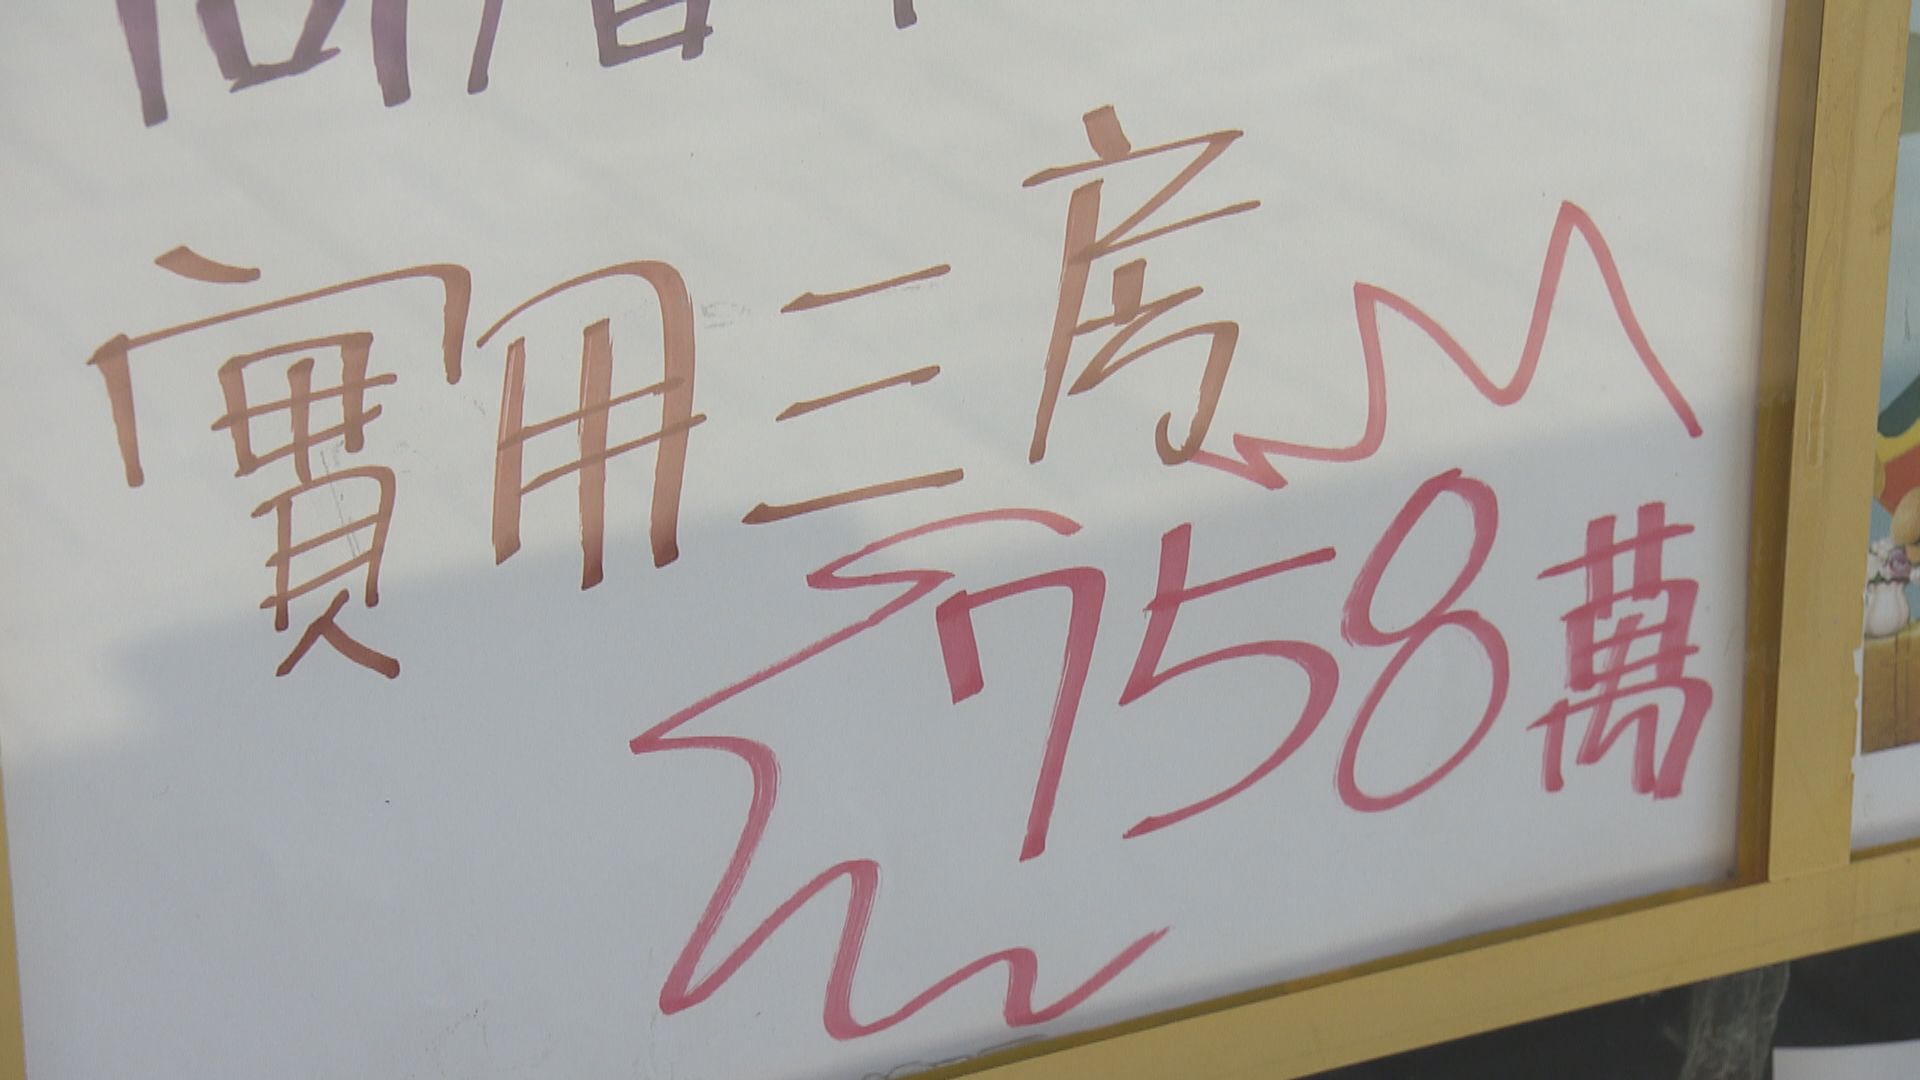 實用三房
758萬